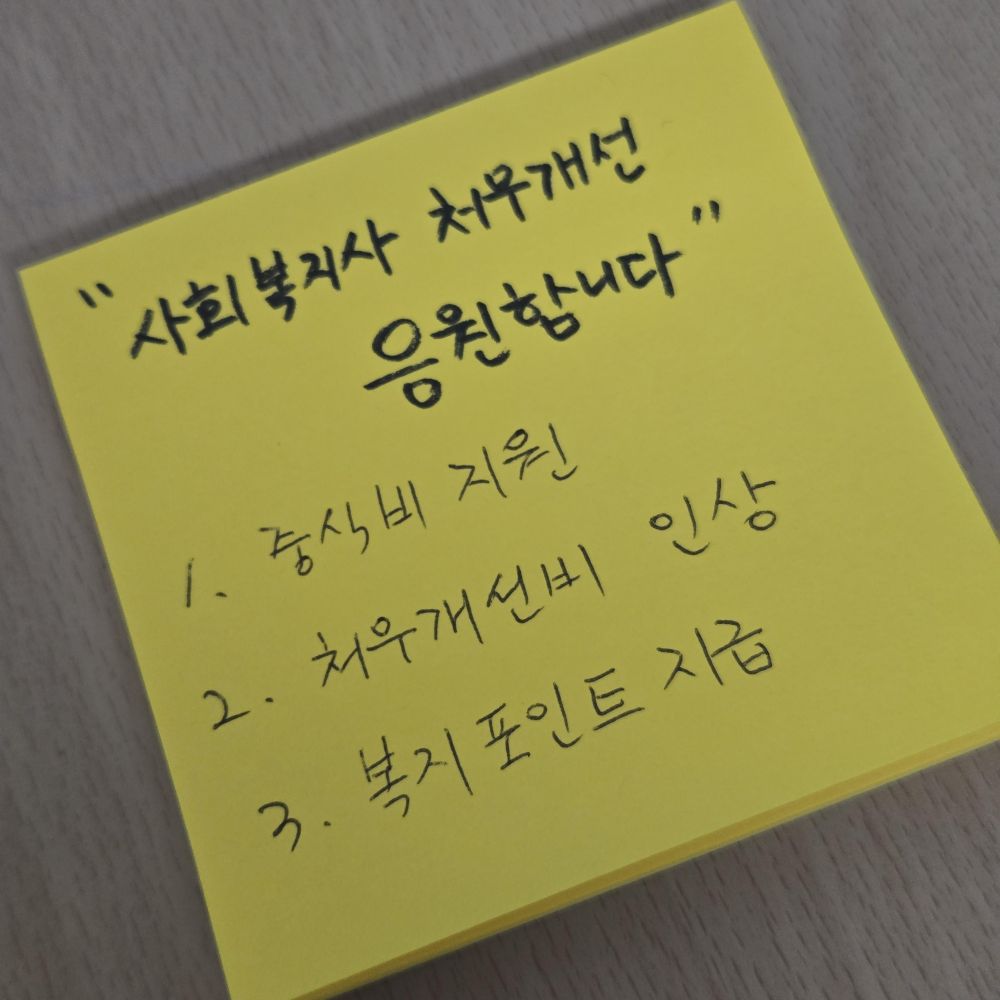 "사회복지사 처우개선
응원합니다"
1. 중식비 지원
2. 처우개선비 인상
3. 복지포인트 지급